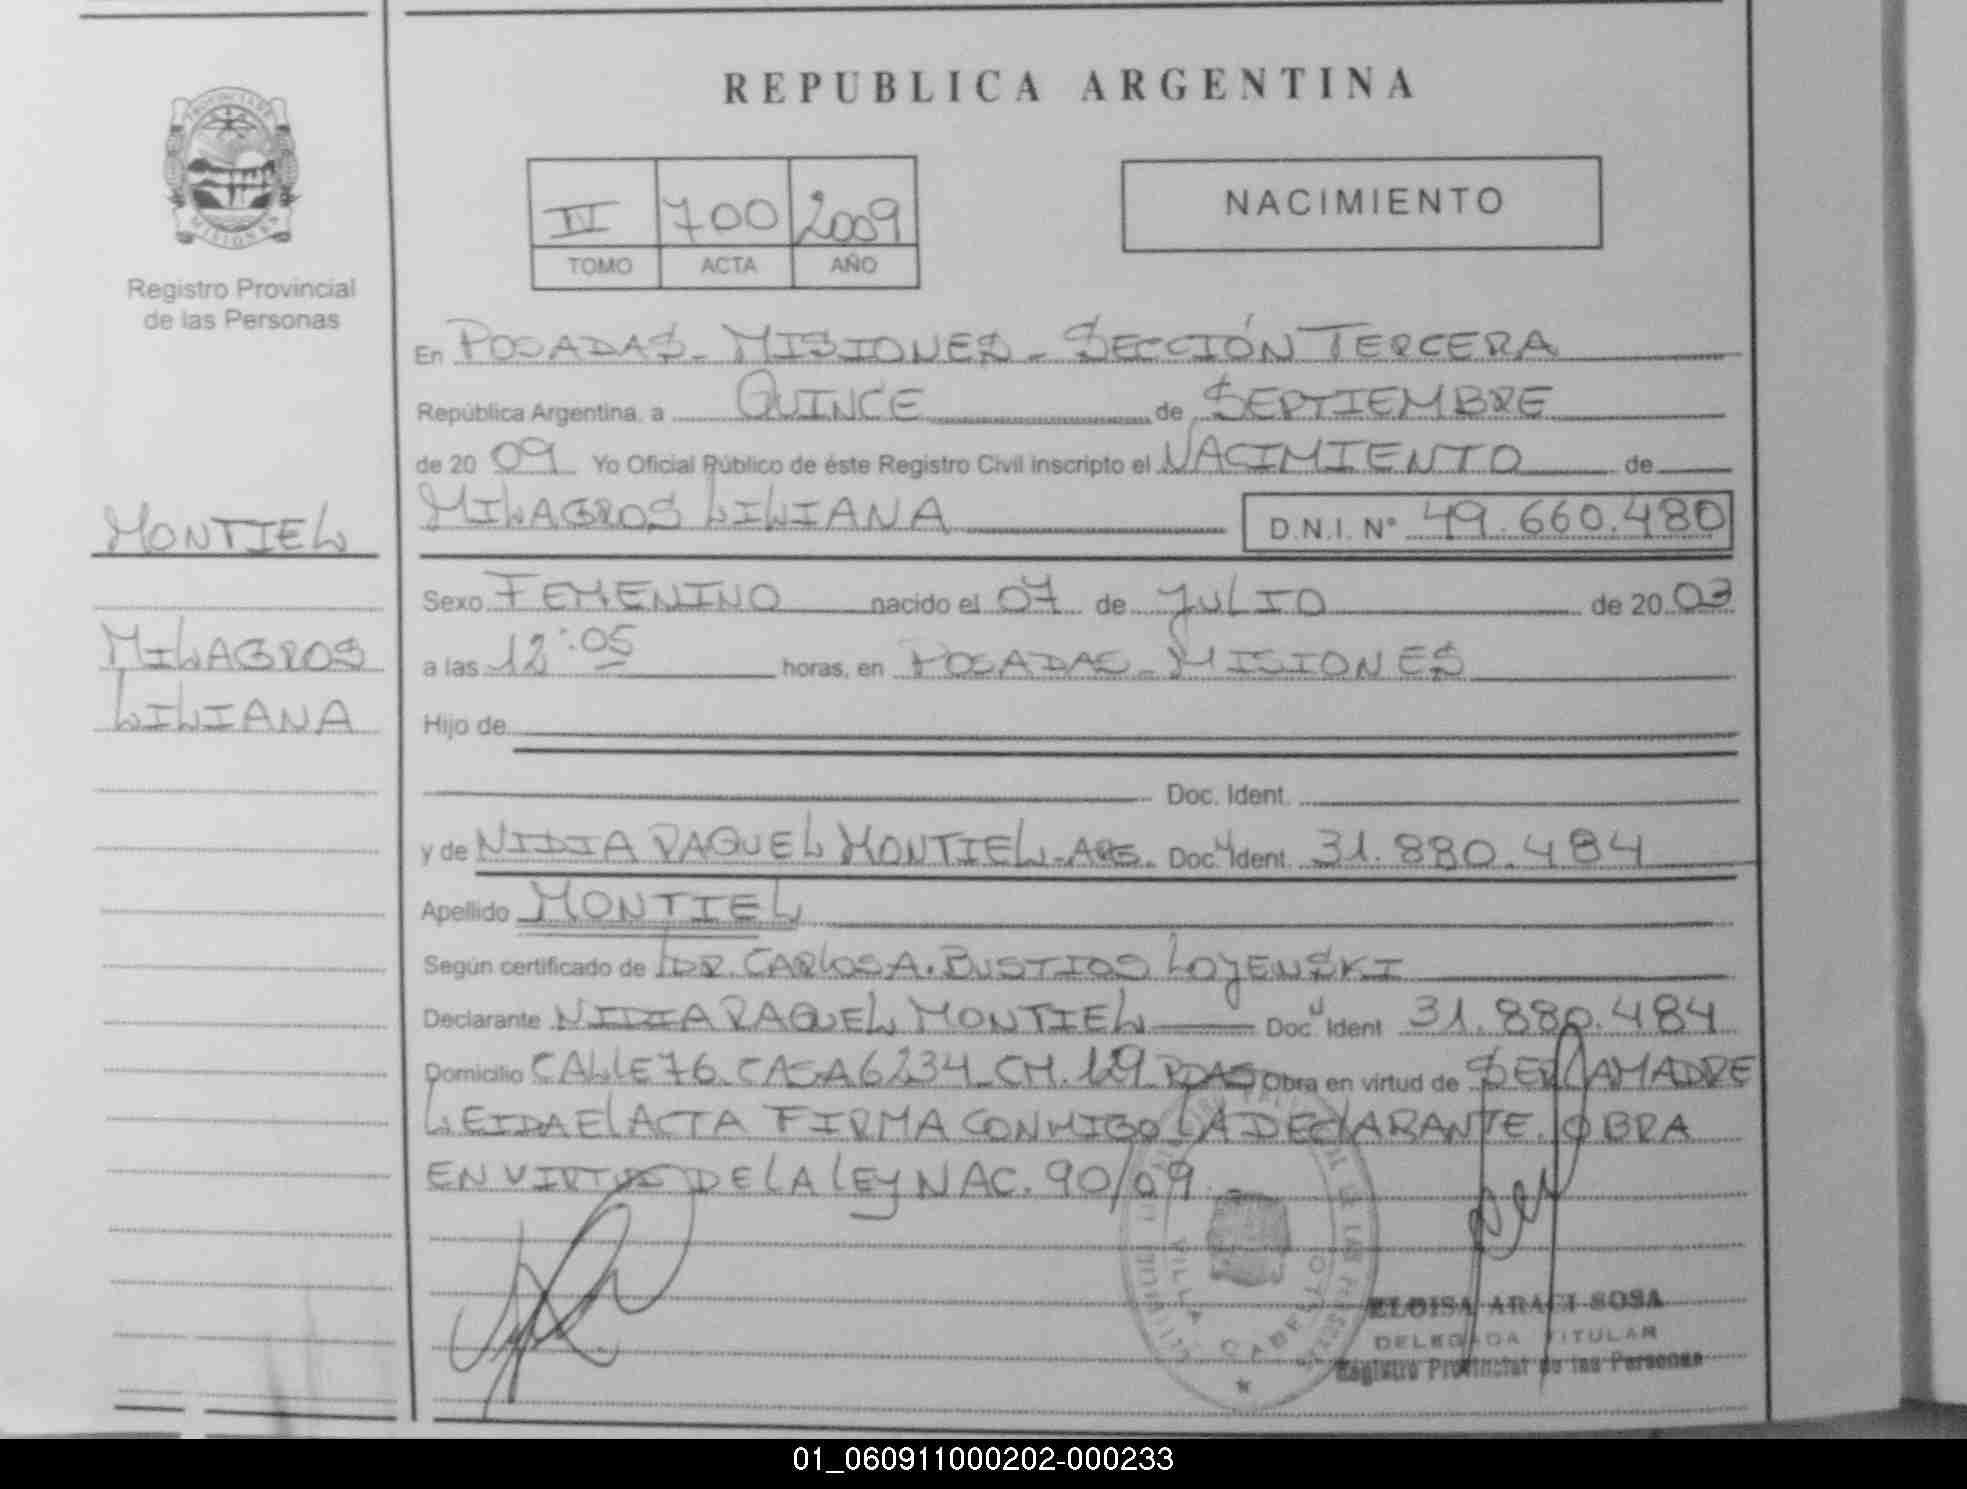 REPUBLICA ARGENTINA
PROVINCIA DE
MISIONES
Registro Provincial
de las Personas
II 700 2009
TOMO ACTA AÑO
NACIMIENTO
En POSADAS - MISIONES - SECCIÓN TERCERA
República Argentina, a QUINCE de SEPTIEMBRE
de 20 09 Yo Oficial Público de éste Registro Civil inscripto el NACIMIENTO de
MILAGROS LILIANA D.N.I. N° 49.660.480
MONTIEL
MILAGROS
LILIANA
Sexo FEMENINO nacido el 07 de JULIO de 20 03
a las 12:05 horas, en POSADAS - MISIONES
Hijo de
Doc. Ident.
y de NIDIA RAQUEL MONTIEL - ARG. Doc. Ident. 31.880.484
Apellido MONTIEL
Según certificado de DR. CARLOS A. BUSTIOS LOYENSKI
Declarante NIDIA RAQUEL MONTIEL Doc. Ident 31.880.484
Domicilio CALLE 76. CASA 6234 - CH. 129 PDAS Obra en virtud de SER LA MADRE
LEIDA EL ACTA FIRMA CONMIGO LA DECLARANTE. OBRA
EN VIRTUD DE LA LEY NAC. 90/09.-
VILLA CABELLO
ELOISA ARACI SOSA
DELEGADA TITULAR
Registro Provincial de las Personas
01_060911000202-000233